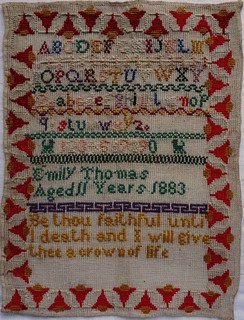 ABCDEF IJKLM
OPQRSTU WXY
abc e g i l nop
q stu w y z
Emily Thomas
Aged 11 Years 1883
Be thou faithful until
I death and I will give
thee a crown of life